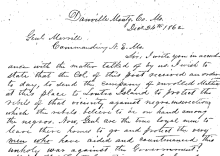 Danville Montg. Co. Mo.
Dec 26th 1862
Genl Merrill
Commanding N. E. Mo.
Sir, I write you in accord
ance with the matter talked of by us I wish to
state that the Col of this post received an order
to day, to send the company of enrolled Militia
at this place to Loutre Island to protect the
rebels of that vicinity against negro insurrection
which the rebels believe to be on hand among
the negroes. Now Genl are the true loyal men to
leave their homes to go and protect the very
men who have aided and countenanced this
unholy war against the Government?